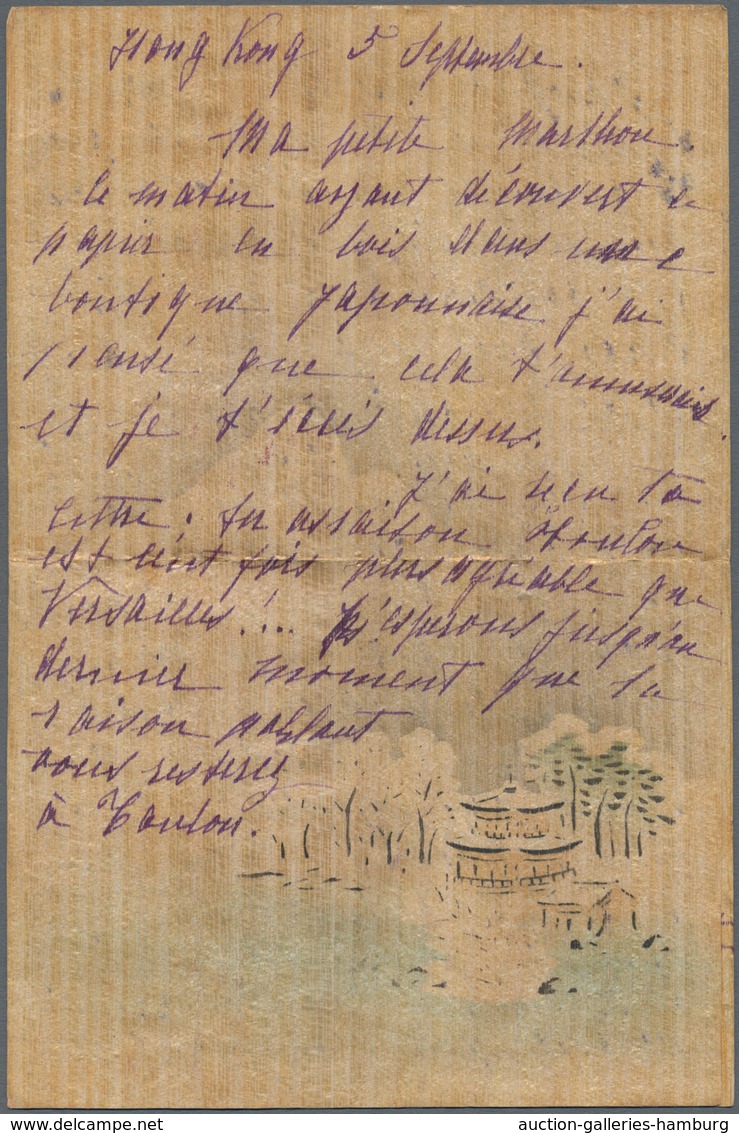 Hong Kong 5 Septembre.
Ma petite Marthou.
Ce matin ayant découvert ce
papier en bois dans une
boutique Japonnaise j'ai
pensé que cela t'amuserais
et je t'écris dessus.
J'ai recu ta
lettre. tu as raison Toulon
est cent fois plus agréable que
Versailles!... j'esperons jusqu'au
dernier moment que la
raison parlant
vous resterez
à Toulon.
auction-galleries-hamburg